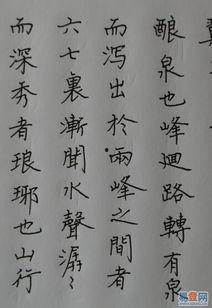 酿泉也峰迴路轉有泉
而泻出於兩峰之間者
六七裏漸聞水聲潺々
而深秀者琅琊也山行